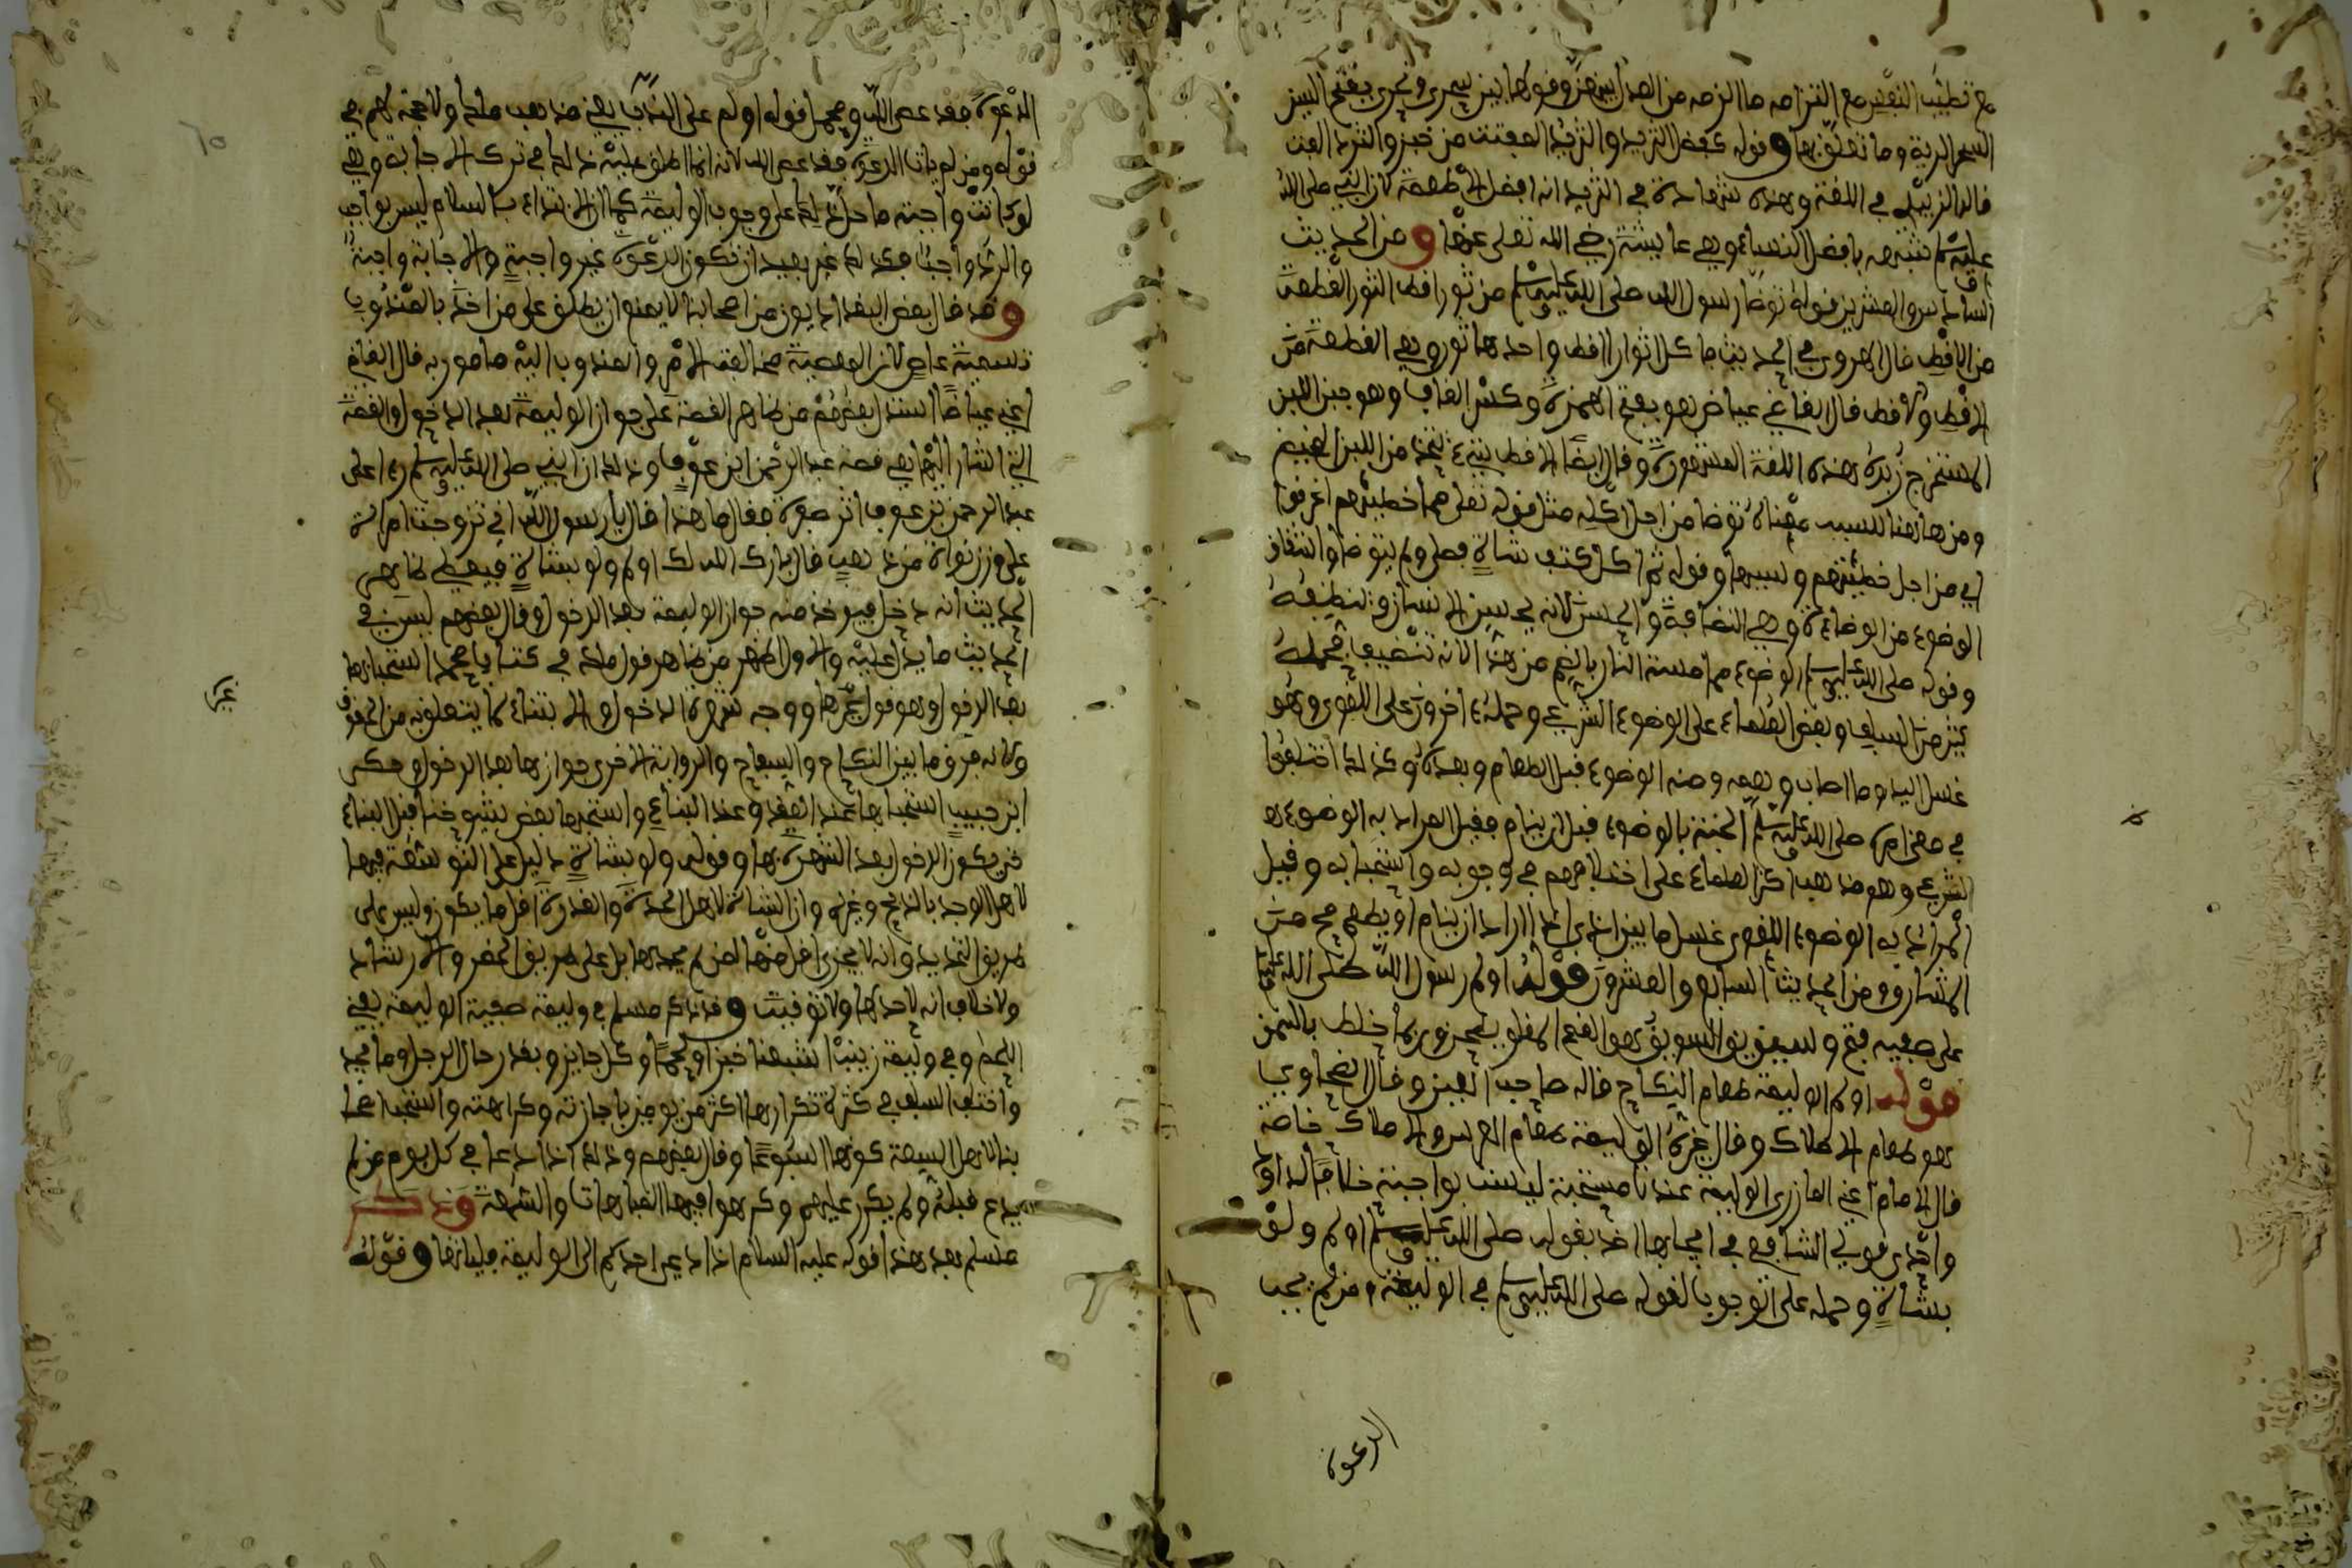 مع تطييب النفس مع التزامه ما الزمه من الصداق وقولها بين سحري ونحري بفتح السين
السحر الرية وما تعلق بها وقوله كفضل الثريد والثريد المفتت من خبز والثرد الفت
قاله الزبيدي في اللغة وهذه شهادة في الثريد انه افضل الاطعمة لان النبي صلى الله
عليه وسلم شبهه بافضل النساء وهي عايشة رضي الله تعلى عنها ومن الحديث
السادس والعشرين قوله توضا رسول الله صلى الله عليه وسلم من ثور اقط الثور القطعة
من الاقط قال الهروي في الحديث ما كل اثوار اقط واحدها ثور وهي القطعة من
الاقط والاقط قال القاضي عياض هو بفتح الهمزة وكسر القاف وهو جبن اللبن
المستخرج زبده هذه اللغة المشهورة وقال ايضا الاقط شيء يتخذ من اللبن المخيض
ومن ها هنا للسبب معناه توضا من اجل اكله مثل قوله تعلى مما خطيئتهم اغرقوا
اي من اجل خطيئتهم وبسببها وقوله ثم اكل كتف شاة فصلى ولم يتوضا واشتقاق
الوضوء من الوضاءة وهي النظافة والحسن لانه يحسن الانسان وينظفه
وقوله صلى الله عليه وسلم الوضوء مما مست النار بالضم من هذا لانه تنظيف فحمله
كثير من السلف وبعض العلماء على الوضوء الشرعي وحمله اخرون على اللغوي وهو
غسل اليد وما اصاب وفمه ومنه الوضوء قبل الطعام وبعده وكذلك اختلفوا
في معنى امره صلى الله عليه وسلم الجنب بالوضوء قبل ان ينام فقيل المراد به الوضوء
الشرعي وهو مذهب اكثر العلماء على اختلافهم في وجوبه واستحبابه وقيل
المراد به الوضوء اللغوي غسل ما بين اذى اذا اراد ان ينام او يطعم من
المشارق ومن الحديث السابع والعشرون قوله اولم رسول الله صلى الله عليه وسلم
على صفية بتمر وسويق السويق هو القمح المقلو يطحن وربما خلط بالسمن
قوله اولم الوليمة طعام النكاح قاله صاحب العين وقال الخطابي
هو طعام الاملاك وقال غيره الوليمة طعام العرس والاملاك خاصة
قال الامام اعني المازري الوليمة عندنا مستحبة ليست بواجبة خلافا لداود
واحدى قولي الشافعي في ايجابها اخذ بقوله صلى الله عليه وسلم اولم ولو
بشاة وحمله على الوجوب لقوله صلى الله عليه وسلم في الوليمة ومن لم يجب
الدعوة
الدعوة فقد عصى الله ومحمل قوله اولم على الندب يعني مذهب ملك ولا حجة لهم في
قوله ومن لم يات الدعوة فقد عصى الله لانه انما اطلق عليه ذلك في ترك الاجابة وهي
لو كانت واجبة ما دل ذلك على وجوب الوليمة كما ان الابتداء بالسلام ليس بواجب
والرد واجب فكذلك غير بعيد ان تكون الدعوة غير واجبة والاجابة واجبة
وقد قال بعض البغداديون من اصحابنا لا يمنع ان يطلق على من اخل بالمندوب
تسمية عاص لان المعصية مخالفة الامر والمندوب اليه مامور به قال القاضي
اعني عياضا استدل بعضهم من ظاهر القصة على جواز الوليمة بعد الدخول والقصة
التي اشار اليها هي قصة عبد الرحمن ابن عوف وذلك ان النبي صلى الله عليه وسلم راى على
عبد الرحمن بن عوف اثر صفرة فقال ما هذا قال يا رسول الله اني تزوجت امراة
على وزن نواة من ذهب قال بارك الله لك اولم ولو بشاة فيعطي ظاهر
الحديث انه دخل فيوخذ منه جواز الوليمة بعد الدخول وقال بعضهم ليس في
الحديث ما يدل عليه والاول اظهر من ظاهر قول ملك في كتاب محمد استحبابها
بعد الدخول وهو قول غيره ووجه شهرة الدخول والبناء لما يتعلق به من الحقوق
وكانه فرق ما بين النكاح والسفاح والرواية الاخرى جوازها بعد الدخول وحكى
ابن حبيب استحبابها عند العقد وعند البناء واستحبها بعض شيوخنا قبل البناء
حتى يكون الدخول بعد الشهرة بها وقوله ولو بشاة دليل على التوسعة فيها
لاهل الوجد بالذبح وغيره وان الشاة لاهل الجدة والقدرة اقل ما يكون وليس على
طريق التحديد وانه لا يجزي اقل منها لمن لم يجدها بل على طريق الحض والارشاد
ولا خلاف انه لا حد لها ولا توقيت وقد ذكر مسلم في وليمة صفية الوليمة بغير
اللحم وفي وليمة زينب اشبعنا خبزا ولحما وكل جايز وبقدر حال الرجل وما يجد
واختلف السلف في كثرة تكرارها اكثر من يومين باجازته وكراهته واستحب اصحا
بنا لاهل السعة كونها اسبوعا وقال بعضهم وذلك اذا دعا في كل يوم من لم
يدع قبله ولم يكرر عليهم وكرهوا فيها المباهاة والسمعة وذكر
مسلم بعد هذا قوله عليه السلام اذا دعي احدكم الى الوليمة فلياتها وقوله